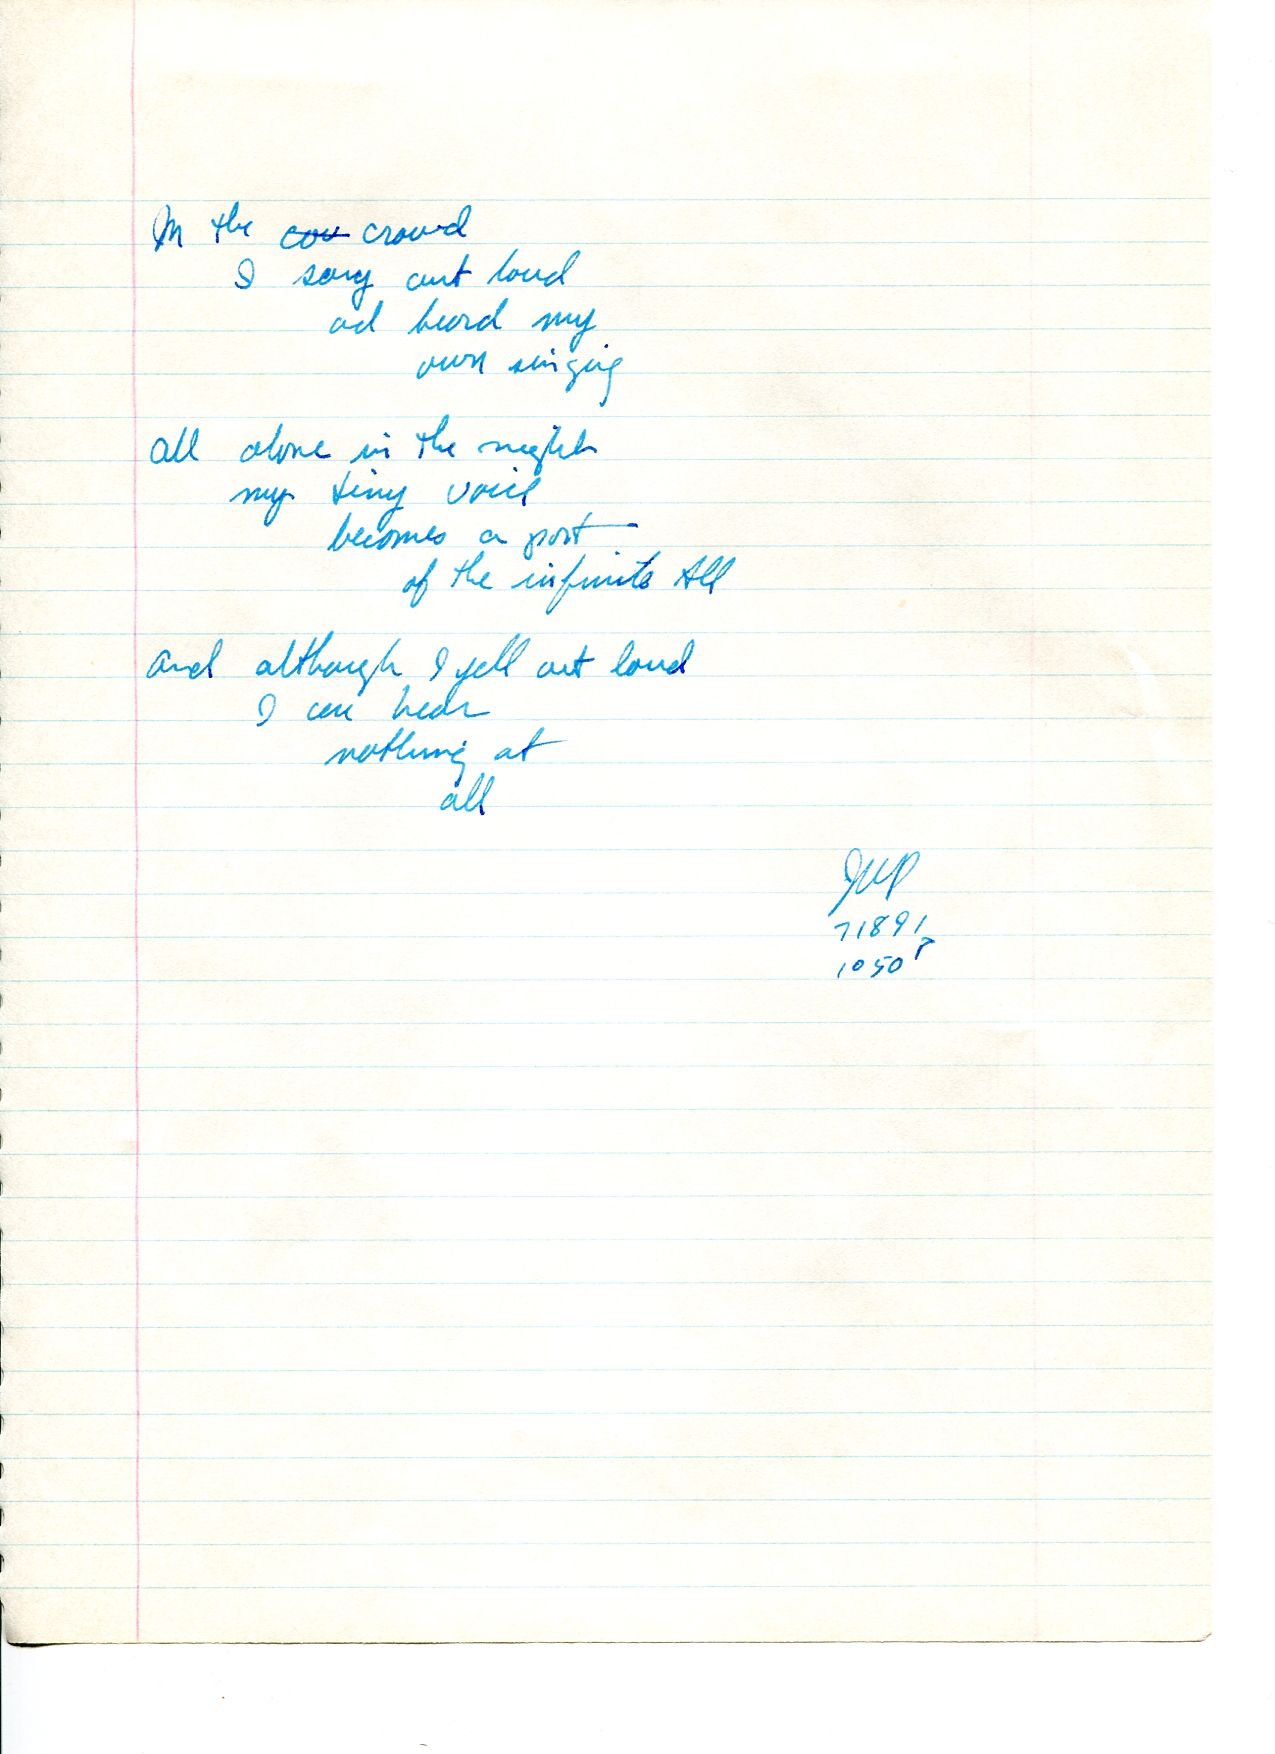 In the cou crowd
I sang out loud
ad heard my
own singing
all alone in the night
my tiny voice
becomes a part
of the infinite All
and although I yell out loud
I can hear
nothing at
all
JWP
71891
1050P